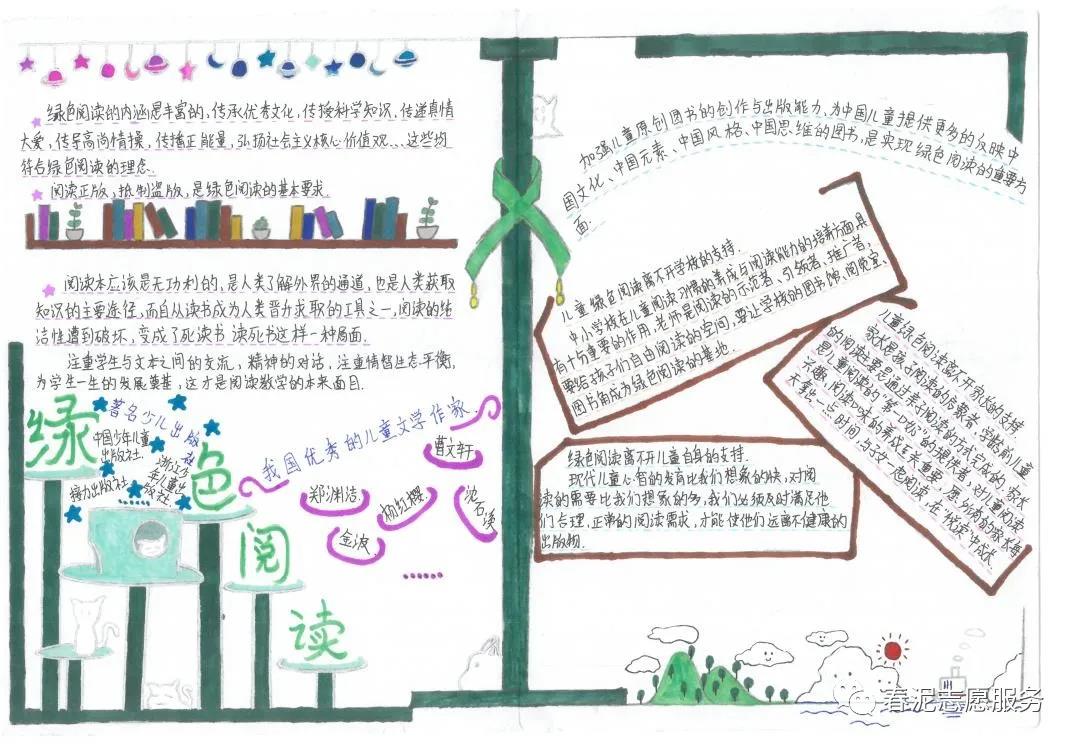 绿色阅读的内涵是丰富的,传承优秀文化,传授科学知识,传递真情
大爱,传导高尚情操,传播正能量,弘扬社会主义核心价值观……这些均
符合绿色阅读的理念.
阅读正版,抵制盗版,是绿色阅读的基本要求.
阅读本应该是无功利的,是人类了解外界的通道,也是人类获取
知识的主要途径,而自从读书成为人类晋升求取的工具之一,阅读的纯
洁性遭到破坏,变成了死读书 读死书这样一种局面.
注重学生与文本之间的交流,精神的对话,注重情智生态平衡,
为学生一生的发展奠基,这才是阅读教学的本来面目.
绿
色
阅
读
著名少儿出版社
中国少年儿童
出版社.
浙江少
年儿童出
版社
接力出版社
......
我国优秀的儿童文学作家
曹文轩
郑渊洁
杨红樱
沈石溪
金波
......
加强儿童原创图书的创作与出版能力,为中国儿童提供更多的反映中
国文化、中国元素、中国风格、中国思维的图书,是实现绿色阅读的重要方
面.
儿童绿色阅读离不开学校的支持.
中小学校在儿童阅读习惯的养成与阅读能力的培养方面,具
有十分重要的作用,老师是阅读的示范者、引领者、推广者,
要给孩子们自由阅读的空间,要让学校的图书馆、阅览室、
图书角成为绿色阅读的基地.
儿童绿色阅读离不开家长的支持.
家长是孩子阅读的启蒙者,学龄前儿童
的阅读主要是通过亲子阅读的方式完成的,家长
是儿童阅读的"第一口奶"的提供者,对儿童阅读
兴趣,阅读口味的养成至关重要,愿所有的家长每
天拿出一点时间,与子女一起阅读,在"悦读"中成长.
绿色阅读离不开儿童自身的支持.
现代儿童心智的发育比我们想象的快,对阅
读的需要比我们想象的多,我们必须及时满足他
们合理,正常的阅读需求,才能使他们远离不健康的
出版物.
春泥志愿服务